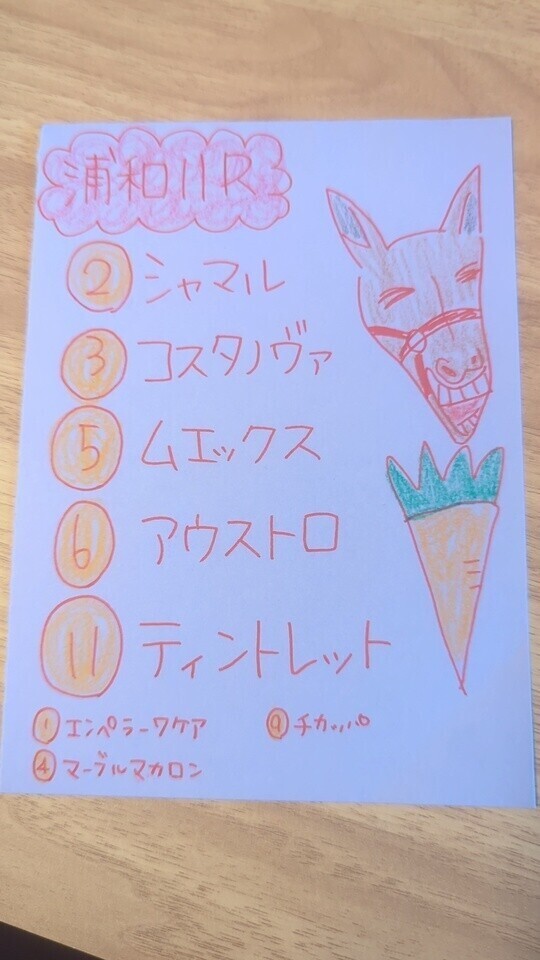 浦和11R
② シャマル
③ コスタノヴァ
⑤ ムエックス
⑥ アウストロ
⑪ ティントレット
① エンペラーワケア
⑨ チカッパ
④ マーブルマカロン